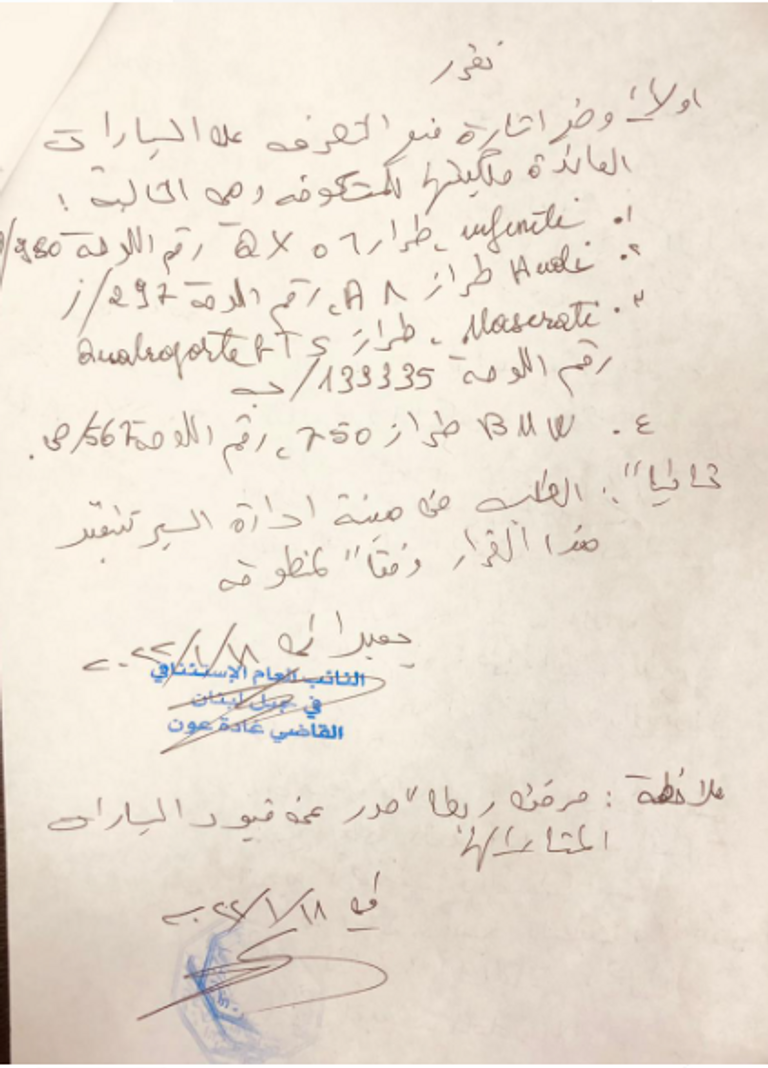 نقرر
اولاً وضع اشارة منع التصرف على السيارات
العائدة ملكيتها للمستدعى وهي التالية :
١. infiniti طراز QX 56 رقم اللوحة 980/
٢. Audi طراز A8، رقم اللوحة 297/ز
٣. Maserati، طراز Quatroporte
رقم اللوحة 133335/ب
٤. BMW طراز 750، رقم اللوحة 567/ص.
ثانياً: الطلب من هيئة ادارة السير تنفيذ
هذا القرار وفقاً لمنطوقه
بعبدا في ٢٠٢٢/١/١٨
النائب العام الإستئنافي
في جبل لبنان
القاضي غادة عون
ملاحظة : مرفق ربطاً صور عن قيود السيارات
المشار اليها
في ٢٠٢٢/١/١٨